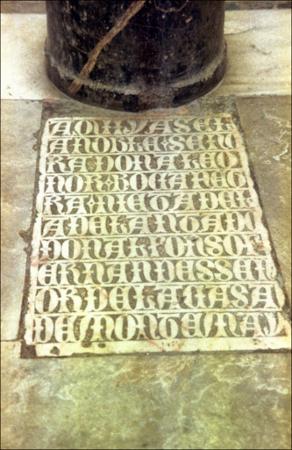 AQUI YASE L
A NOBLE SEÑO
RA DOÑA LEO
NOR BOCANEG
RA NIETA DEL
ADELANTADO
DON ALFONSO F
ERNANDES SEÑ
OR DE LA CASA
DE MONTEMAY